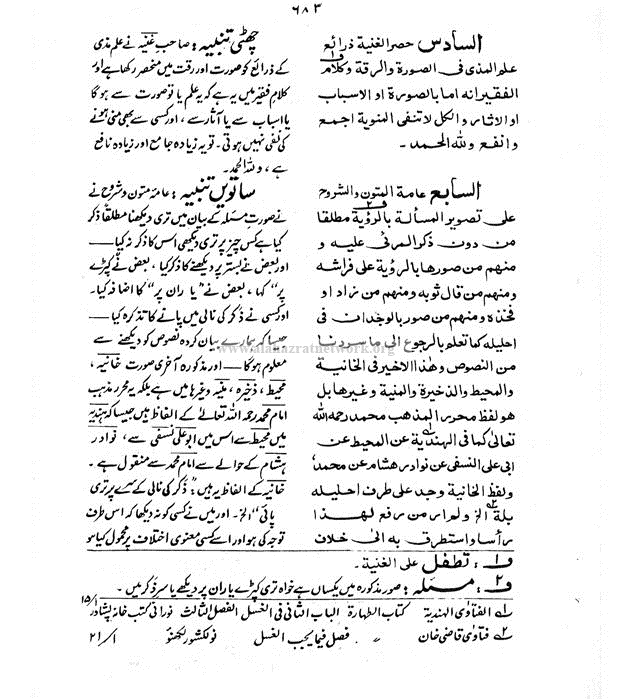 ٦٨٣
السادس حصر الغنية ذرائع
علم المذی فی الصورة والرقة وكلام
الفقیرانه اما بالصورة او الاسباب
او الاثار والكل لا تنفی المنوية اجمع
وانفع ولله الحمد۔
السابع عامة المتون والشروح
علی تصوير المسألة بالرؤية مطلقا
من دون ذكر المرئی عليه و
منهم من صورها بالرؤية علی فراشه
ومنهم من قال ثوبه ومنهم من زاد او
فخذہ ومنهم من صور بالوجدان فی
احليله كما تعلم بالرجوع الی ما سردنا
من النصوص وهذا الاخير فی الخانية
والمحيط والذخيرة والمنية وغيرها بل
هو لفظ محرر المذهب محمد رحمه الله
تعالیٰ كما فی الهندية عن المحيط عن
ابی علی النسفی عن نوادر هشام عن محمد
ولفظ الخانية وجد علی طرف احليله
بلة الخ ولم ار من رفع لهذا
رأسا واستطرق به الی خلاف
چھٹی تنبیہ: صاحبِ غنیہ نے علم مذی
کے ذرائع کو صورت اور رقت میں منحصر رکھا ہے اور
کلامِ فقیر میں یہ ہے کہ یہ علم یا تو صورت سے ہوگا
یا اسباب سے یا آثار سے، اور کسی سے بھی منی ہونے
کی نفی نہیں ہوتی۔ تو یہ زیادہ جامع اور زیادہ نافع
ہے، وللہ الحمد۔
ساتویں تنبیہ: عامہ متون و شروح نے
نے صورتِ مسئلہ کے بیان میں تری دیکھنا مطلقاً ذکر
کیا ہے کس چیز پر تری دیکھی اس کا ذکر نہ کیا۔
اور بعض نے بستر پر دیکھنے کا ذکر کیا، بعض نے کپڑے
پر" کہا، بعض نے "یا ران پر" کا اضافہ کیا۔
اور کسی نے ذکر کی نالی میں پانے کا تذکرہ کیا۔
جیسا کہ ہمارے بیان کردہ نصوص کو دیکھنے سے
معلوم ہوگا۔ اور مذکورہ آخری صورت خانیہ،
محیط، ذخیرہ، منیہ وغیرہا میں ہے بلکہ یہ محررِ مذہب
امام محمد رحمہ اللہ تعالیٰ کے الفاظ میں جیسا کہ ہندیہ
میں محیط سے اس میں ابو علی نسفی سے، نوادر
ہشام کے حوالے سے امام محمد سے منقول ہے۔
خانیہ کے الفاظ یہ ہیں: ذکر کی نالی کے سرے پر تری
پائی "الخ۔ اور میں نے کسی کو نہ دیکھا کہ اس طرف
توجہ کی ہو اور اسے کسی معنوی اختلاف پر محمول کیا ہو
www.alahazratnetwork.org
ف۱: تطفل علی الغنیة۔
ف۲: مسئلہ: صورِ مذکورہ میں یکساں ہے خواہ تری کپڑے یا ران پر دیکھے یا سرِ ذکر میں۔
۱ الفتاوی الہندیۃ کتاب الطہارۃ الباب الثانی فی الغسل الفصل الثالث نورانی کتب خانہ پشاور ۱/۱۵
۲ فتاوٰی قاضی خان 〃 فصل فیما یوجب الغسل نولکشور لکھنؤ ۱/۲۱